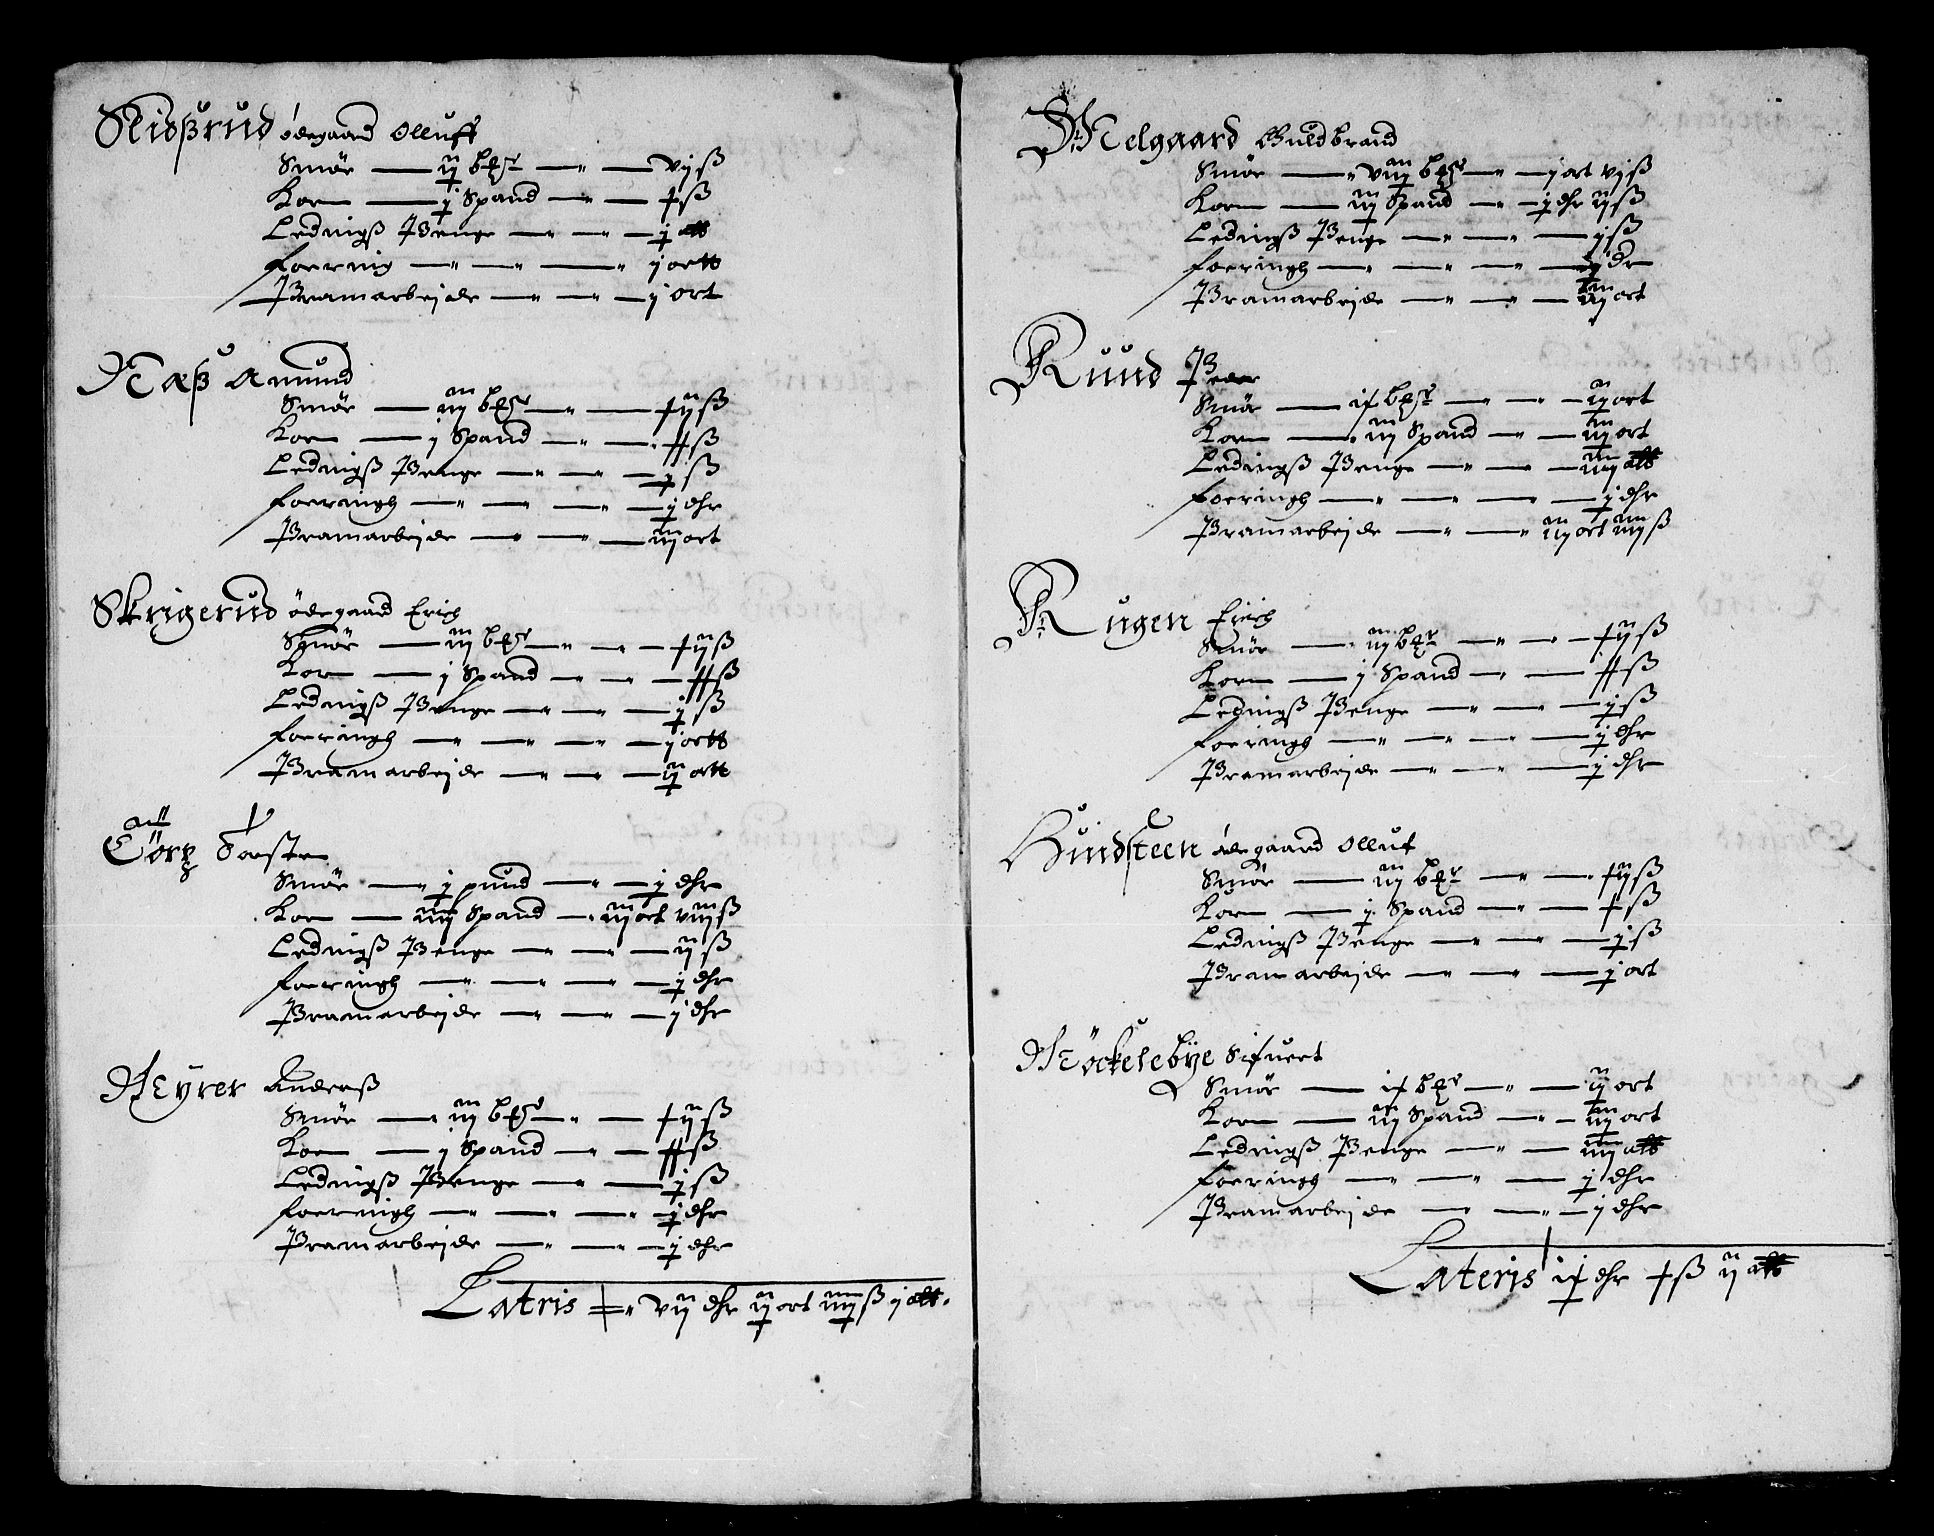 Skidßrud ödegaard Olluff
Smör — ij bEs — vjß
Korn — j Spand — xß
Ledingß Penge — j alb
foering — j ortt
Pramarbejde — j ort
Næß Amund
Smör — iij bEs — xijß
Korn — j Spand — xxß
Ledingß Penge — jß
foeringh — j dhr
Pramarbejde — iij ort
Skrigerud ödegaard Erich
Smör — iij bEs — xijß
Korn — j Spand — xxß
Ledingß Penge — jß
foeringh — j ortt
Pramarbejde — ij ortt
Törp Torsten
Smör — j pund — j dhr
Korn — iiij Spand — iij ort viijß
Ledingß Penge — ijß
foeringh — j dhr
Pramarbejde — j dhr
Heyrer Anderß
Smör — iij bEs — xijß
Korn — j Spand — xxß
Ledingß Penge — jß
foeringh — j dhr
Pramarbejde — j dhr
Latris — vij dhr ij ort iiijß j alb.
Melgaard Guldbrand
Smör — viij bEs — j ort vjß
Korn — iij Spand — j dhr ijß
Ledingß Penge — jß
foeringh — j dr
Pramarbejde — iij ort
Ruud Peder
Smör — ix bEs — ij ort
Korn — iij Spand — iij ort
Ledingß Penge — iiij alb
foeringh — j dhr
Pramarbejde — iij ort iiijß
Rugen Erich
Smör — iij bEr — xijß
Korn — j Spand — xxß
Ledingß Penge — jß
foeringh — j dhr
Pramarbejde — j dhr
Hundsteen ödegaard Olluf
Smör — iij bEr — xijß
Korn — j Spand — xß
Ledingß Penge — jß
Pramarbejde — j ort
Höckelebÿe Sifuert
Smör — ix bEs — ij ort
Korn — iij Spand — iij ort
Ledingß Penge — iiij alb
foeringh — j dhr
Pramarbejde — j dhr
Lateris ix dhr xß ij alb